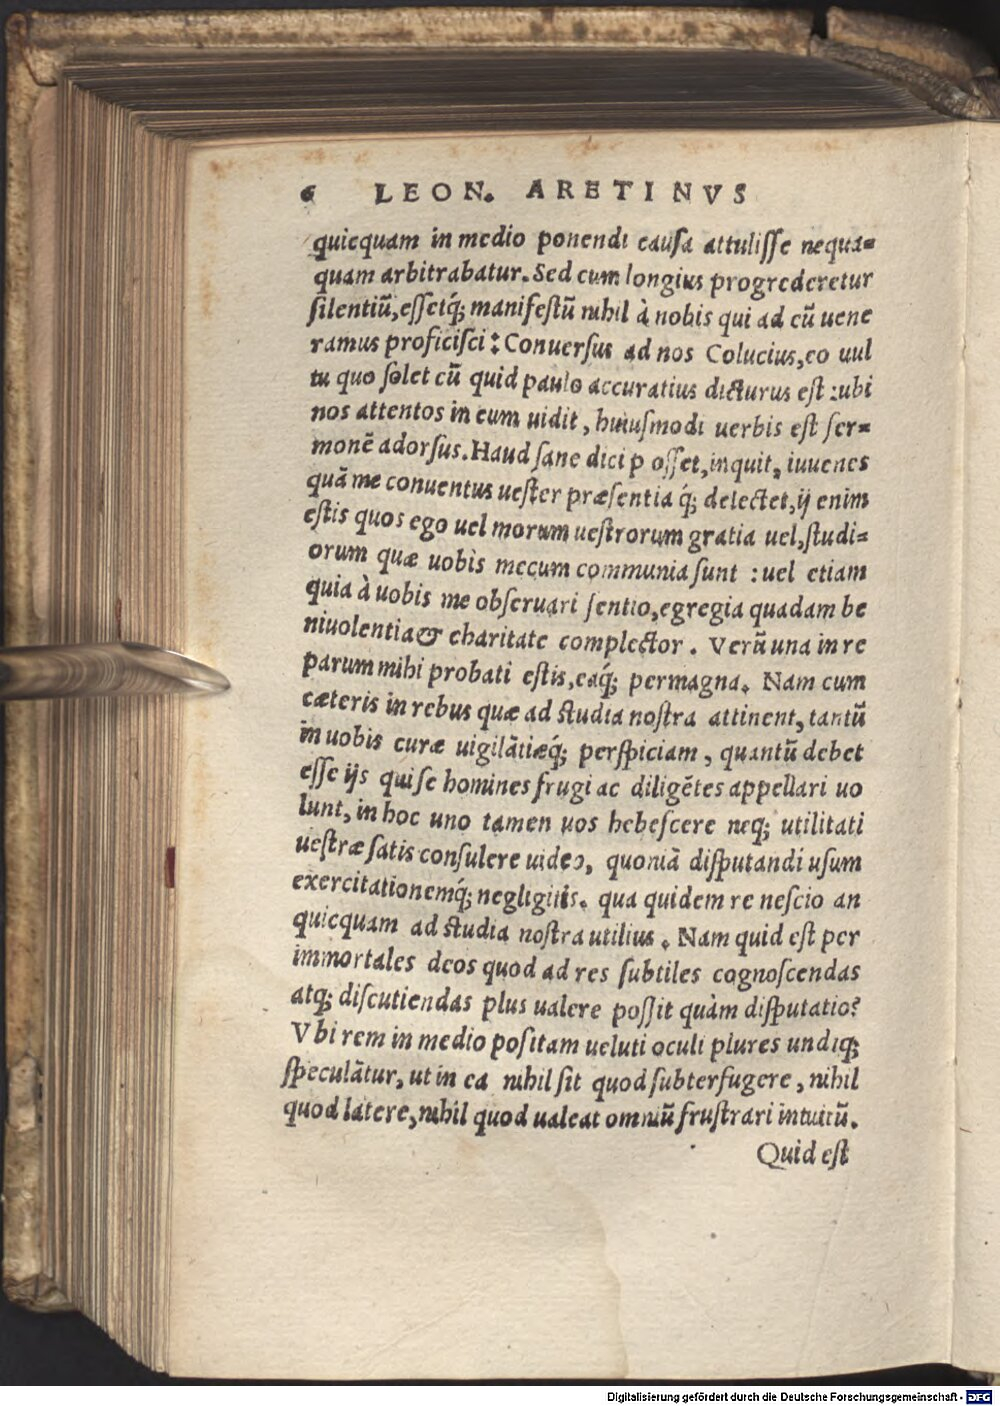 6 LEON. ARETINVS
quicquam in medio ponendi causa attulisse nequa=
quam arbitrabatur. Sed cum longius progrederetur
silentiũ, essetq́; manifestũ nihil à nobis qui ad eũ uene
ramus proficisci: Conuersus ad nos Colucius, eo uul
tu quo solet cũ quid paulo accuratius dicturus est: ubi
nos attentos in eum uidit, huiusmodi uerbis est ser=
monẽ adorsus. Haud sane dici posset, inquit, iuuenes
quã me conuentus uester præsentia q́; delectet, ij enim
estis quos ego uel morum uestrorum gratia uel, studi=
orum quæ uobis mecum communia sunt: uel etiam
quia à uobis me obseruari sentio, egregia quadam be
niuolentia & charitate complector. Verũ una in re
parum mihi probati estis, eaq́; permagna. Nam cum
cæteris in rebus quæ ad studia nostra attinent, tantũ
in uobis curæ uigilãtiæq́; perspiciam, quantũ debet
esse ijs qui se homines frugi ac diligẽtes appellari uo
lunt, in hoc uno tamen uos hebescere neq; utilitati
uestræ satis consulere uideo, quoniã disputandi usum
exercitationemq́; negligitis. qua quidem re nescio an
quicquam ad studia nostra utilius. Nam quid est per
immortales deos quod ad res subtiles cognoscendas
atq; discutiendas plus ualere possit quàm disputatio?
Vbi rem in medio positam ueluti oculi plures undiq;
speculãtur, ut in ea nihil sit quod subterfugere, nihil
quod latere, nihil quod ualeat omniũ frustrari intuitũ.
Quid est
Digitalisierung gefördert durch die Deutsche Forschungsgemeinschaft - DFG